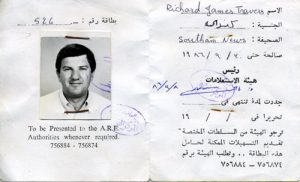 بطاقة رقم : 526
To be Presented to the A.R.E.
Authorities whenever required.
756884 - 756874
الاسم Richard James Travers
الجنسية : كندى
الصحيفة : Southam News
صالحة حتى
رئيس
هيئة الاستعلامات
جددت لمدة تنتهى فى
تحريرا فى / / ١٩
" ترجو الهيئة من السلطات المختصة
تقديم التسهيلات الممكنة لحامل
هذه البطاقة .. وتطلب الهيئة برقم
٧٥٦٨٨٤ - ٧٥٦٨٧٤